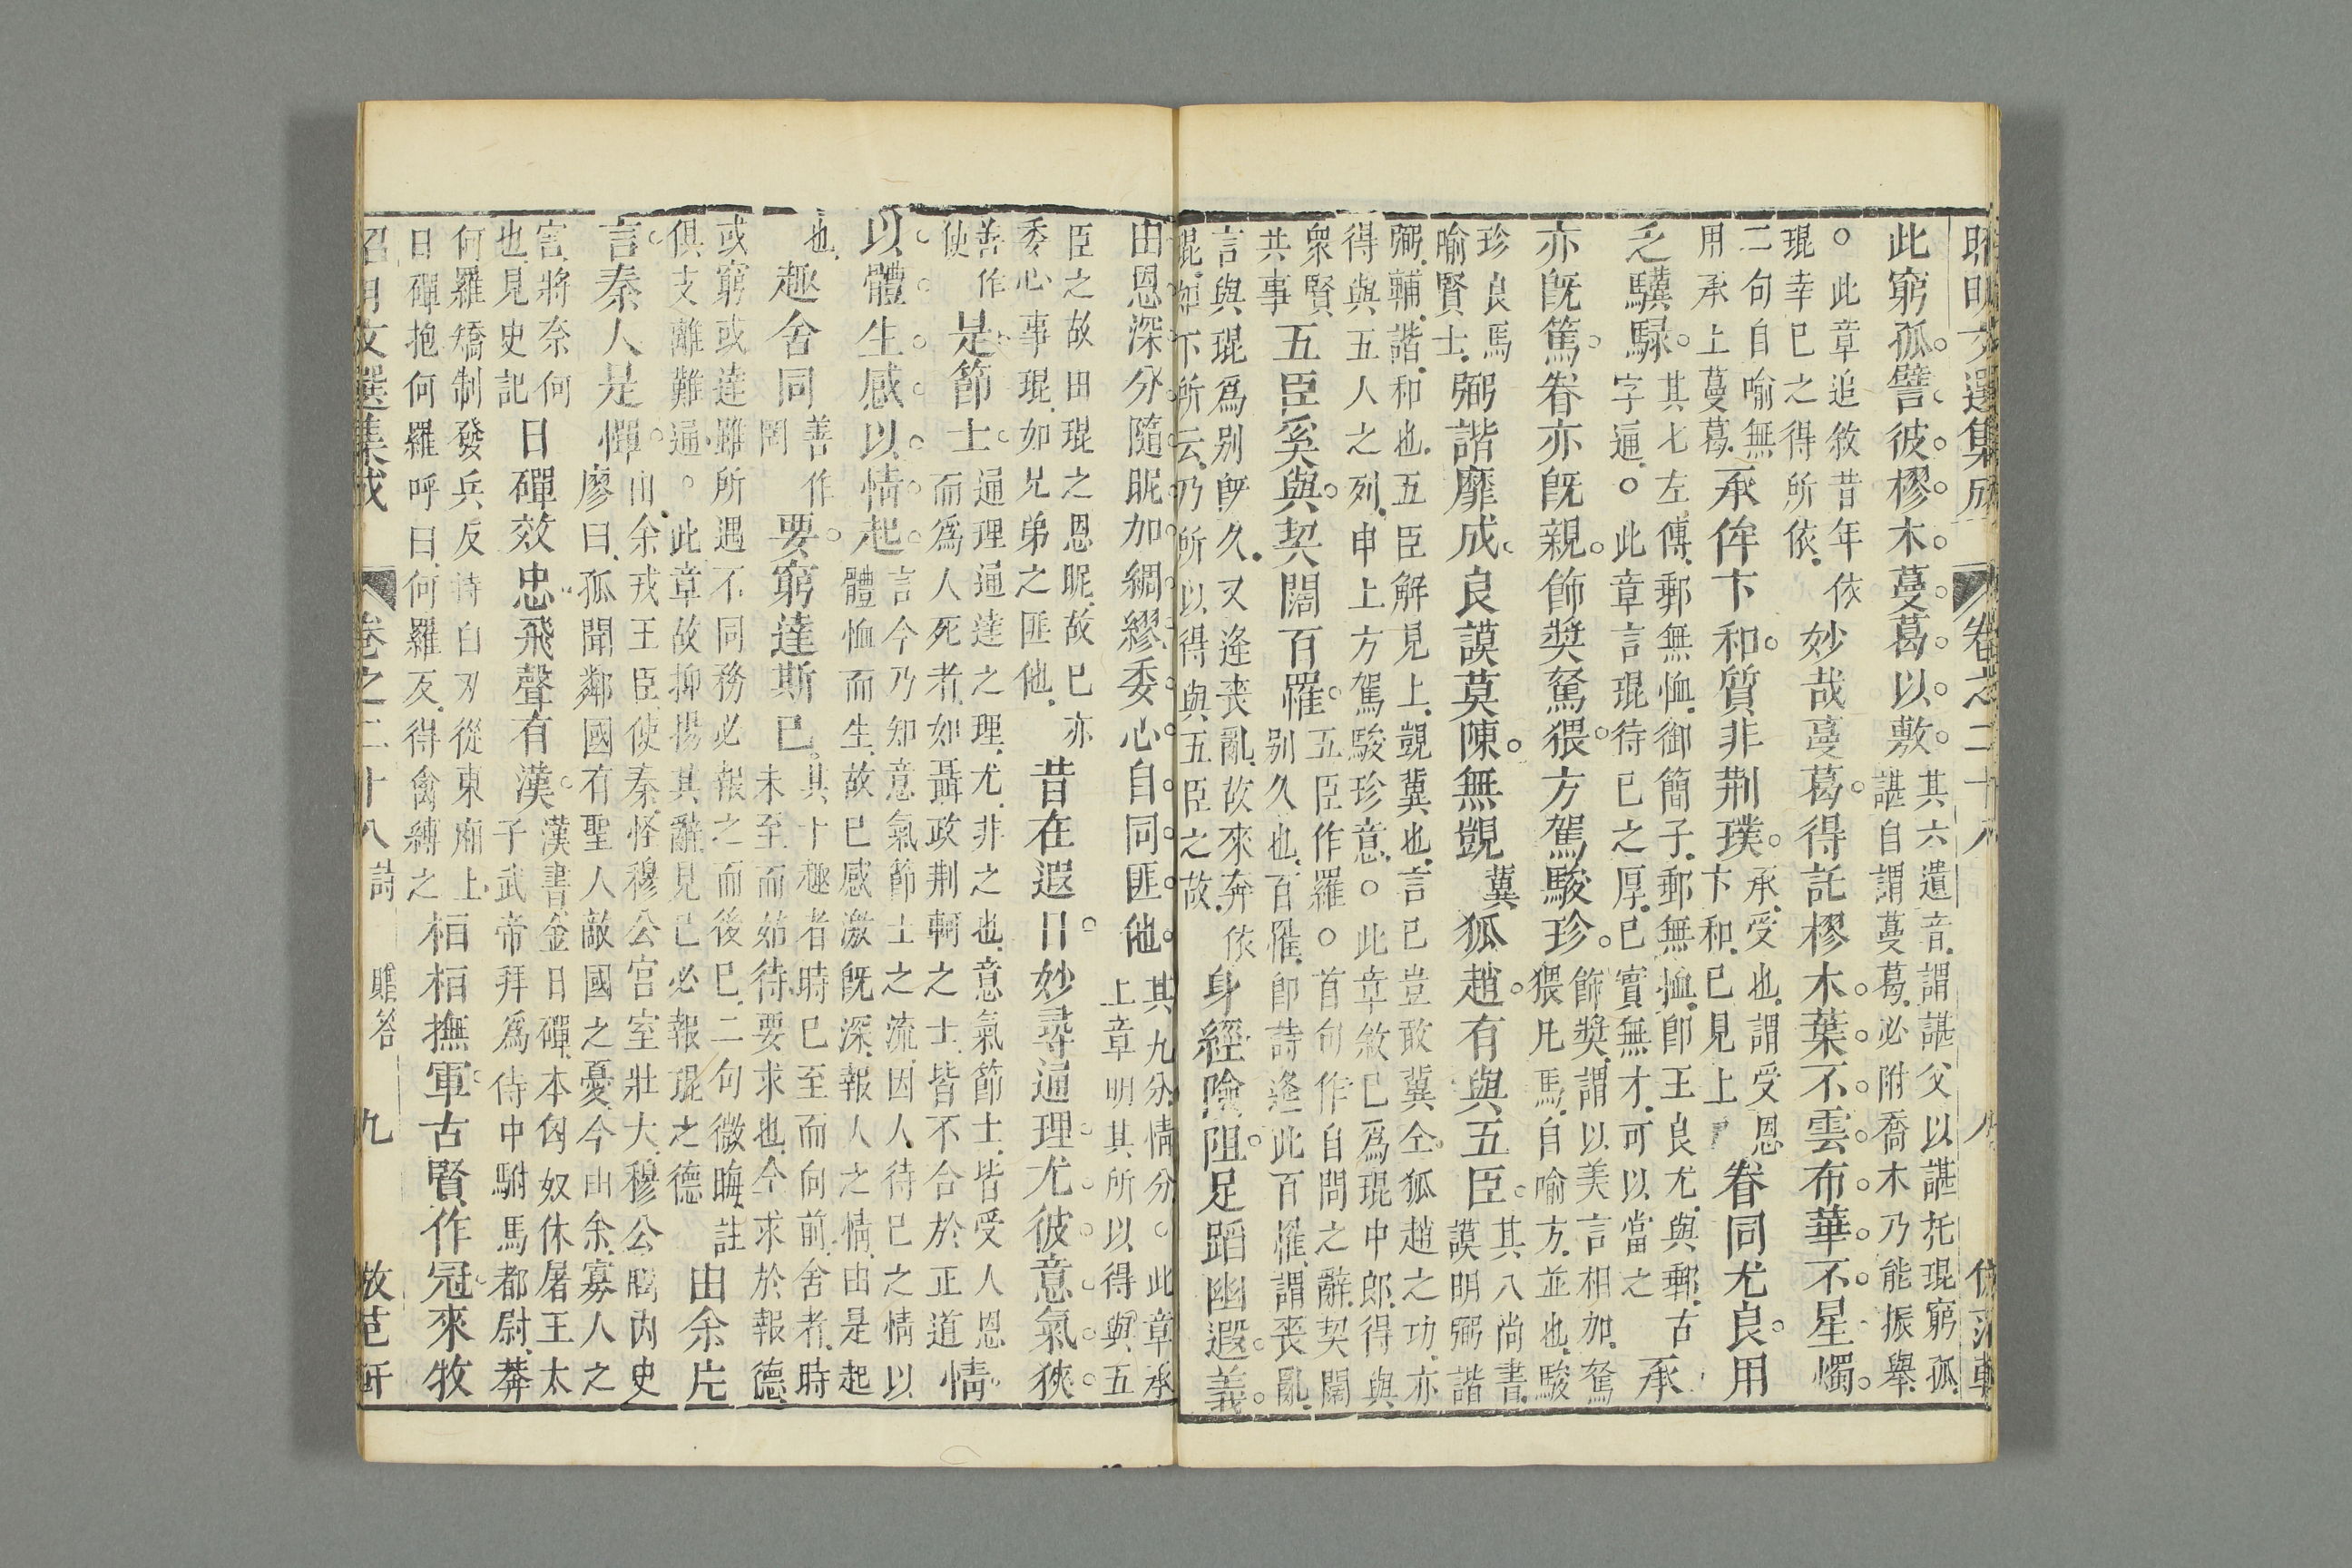 昭明文選集成 卷之二十八 八 倣范軒
此窮孤譬彼樛木蔓葛以敷 其六遺音謂諶父以諶托琨窮孤
諶自謂蔓葛必附喬木乃能振舉
○此章追敘昔年依
琨幸已之得所依 妙哉蔓葛得託樛木葉不雲布華不星燭
二句自喻無
用承上蔓葛 承侔卞和質非荆璞 承受也謂受恩
卞和已見上 眷同尤良用
乏驥騄 其七左傳郵無恤御簡子郵無恤即王良尤與郵古
字通○此章言琨待已之厚已實無才可以當之 承
亦既篤眷亦既親飾奬駑猥方駕駿珍 飾奬謂以美言相加駑
猥凡馬自喻方並也駿
珍良馬
喻賢士 弼諧靡成良謨莫陳無覬 冀 狐趙有與五臣 其八尚書
謨明弼諧
弼輔諧和也五臣解見上覬冀也言已豈敢冀仝狐趙之功亦
得與五人之列申上方駕駿珍意○此章敘已爲琨中郎得與
衆賢
共事 五臣奚與契闊百罹 五臣作羅○首句作自問之辭契闊
別久也百罹即詩逢此百罹謂喪亂
言與琨爲别既久又逢喪亂故來奔依
琨如下所云乃所以得與五臣之故 身經險阻足蹈幽遐義
由恩深分隨昵加綢繆委心自同匪他 其九分情分○此章承
上章明其所以得與五
臣之故由琨之恩昵故已亦
委心事琨如兄弟之匪他 昔在遐日妙尋通理尤彼意氣狹
善作
使 是節士 通理通達之理尤非之也意氣節士皆受人恩
而爲人死者如聶政荆軻之士皆不合於正道 情
以體生感以情起 言今乃知意氣節士之流因人待已之情以
體恤而生故已感激既深報人之情由是起
也 趣舍同 善作
罔 要窮達斯已 其十趣者時已至而向前舍者時
未至而姑待要求也今求於報德
或窮或達雖所遇不同務必報之而後已二句微晦註
俱支離難通○此章故抑揚其辭見已必報琨之德 由余片
言秦人是憚 由余戎王臣使秦怪穆公宮室壯大穆公謂內史
廖曰孤聞鄰國有聖人敵國之憂今由余寡人之
害將奈何
也見史記 日磾效忠飛聲有漢 漢書金日磾本匈奴休屠王太
子武帝拜爲侍中駙馬都尉莽
何羅矯制發兵反詩白刃從東廂上
日磾抱何羅呼曰何羅反得禽縛之 桓桓撫軍古賢作冠來牧
昭明文選集成 卷之二十八 詩 贈答 九 倣范軒